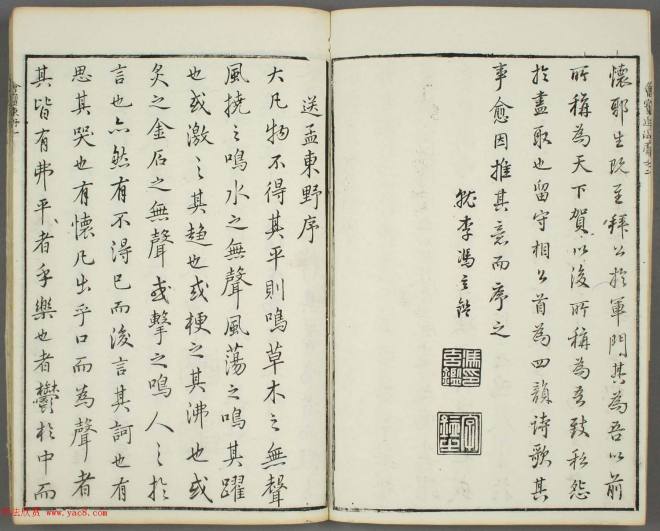 懷耶生既至拜公於軍門其為吾以前
所稱為天下賀以後所稱為吾致私怨
於盡取也留守相公首為四韻詩歌其
事愈因推其意而序之
送孟東野序
大凡物不得其平則鳴草木之無聲
風撓之鳴水之無聲風蕩之鳴其躍
也或激之其趋也或梗之其沸也或
炙之金石之無聲或擊之鳴人之於
言也亦然有不得已而後言其訶也有
思其哭也有懷凡出乎口而為聲者
其皆有弗平者乎樂也者鬱於中而
書法欣赏 www.yac8.com